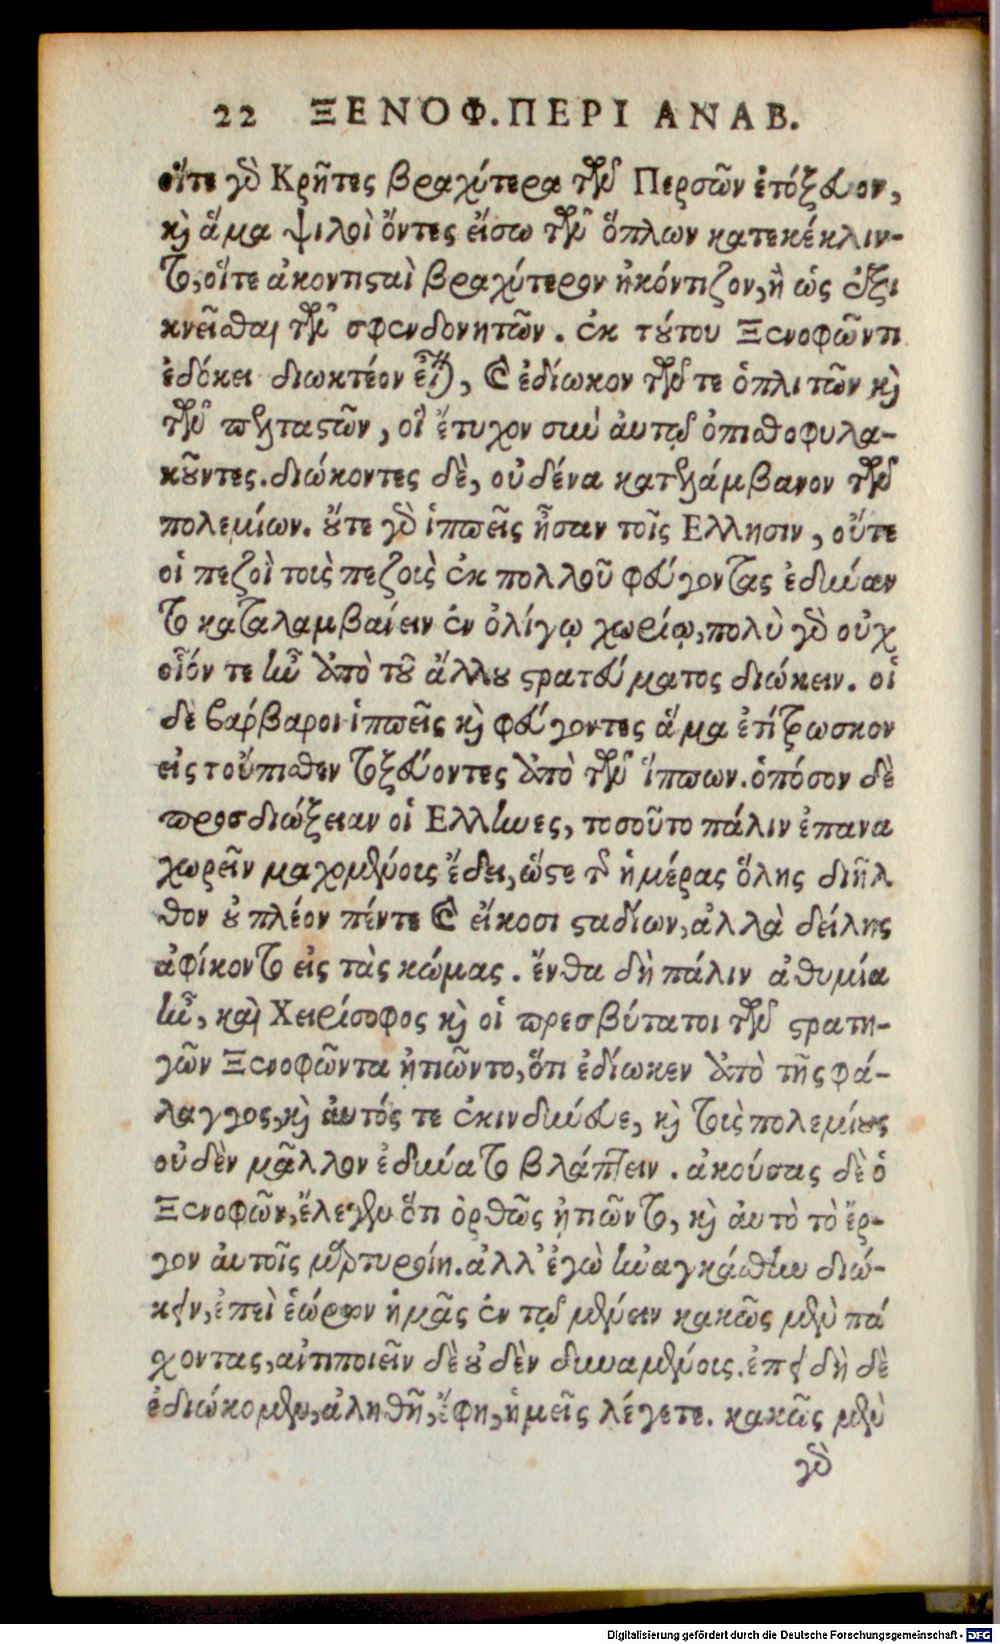 22 ΞΕΝΟΦ. ΠΕΡΙ ΑΝΑΒ.
οἵτε γὸ Κρῆτες βραχύτερα τῶν Περσῶν ἐτόξευον,
καὶ ἅμα ψιλοὶ ὄντες εἴσω τῶν ὅπλων κατεκέκλιν-
το, οἵτε ἀκοντισταὶ βραχύτερον ἠκόντιζον, ἢ ὡς ἐξι
κνεῖσθαι τῶν σφενδονητῶν. ἐκ τούτου Ξενοφῶντι
ἐδόκει διωκτέον εἶναι, καὶ ἐδίωκον τῶν τε ὁπλιτῶν καὶ
τῶν πελταστῶν, οἳ ἔτυχον σὺν αὐτῷ ὀπισθοφυλα-
κοῦντες. διώκοντες δὲ, οὐδένα κατελάμβανον τῶν
πολεμίων. οὔτε γὰρ ἱππεῖς ἦσαν τοῖς Ελλησιν, οὔτε
οἱ πεζοὶ τοὺς πεζοὺς ἐκ πολλοῦ φεύγοντας ἐδύναν
το καταλαμβάνειν ἐν ὀλίγῳ χωρίῳ, πολὺ γὰρ οὐχ
οἷόν τε ἦν ἀπὸ τοῦ ἄλλου στρατεύματος διώκειν. οἱ
δὲ βάρβαροι ἱππεῖς καὶ φεύγοντες ἅμα ἐτίτρωσκον
εἰς τοὔπισθεν τοξεύοντες ἀπὸ τῶν ἵππων. ὁπόσον δὲ
προσδιώξειαν οἱ Ελληνες, τοσοῦτο πάλιν ἐπανα
χωρεῖν μαχομένοις ἔδει, ὥστε τῆς ἡμέρας ὅλης διῆλ
θον οὐ πλέον πέντε καὶ εἴκοσι σταδίων, ἀλλὰ δείλης
ἀφίκοντο εἰς τὰς κώμας. ἔνθα δὴ πάλιν ἀθυμία
ἦν, καὶ Χειρίσοφος καὶ οἱ πρεσβύτατοι τῶν στρατη-
γῶν Ξενοφῶντα ᾐτιῶντο, ὅτι ἐδίωκεν ἀπὸ τῆς φά-
λαγγος, καὶ αὐτός τε ἐκινδύνευε, καὶ τοὺς πολεμίους
οὐδὲν μᾶλλον ἐδύνατο βλάπτειν. ἀκούσας δὲ ὁ
Ξενοφῶν, ἔλεγεν ὅτι ὀρθῶς ᾐτιῶντο, καὶ αὐτὸ τὸ ἔρ-
γον αὐτοῖς μαρτυροίη. ἀλλ' ἐγὼ ἠναγκάσθην διώ-
κειν, ἐπεὶ ἑώρων ἡμᾶς ἐν τῷ μένειν κακῶς μὲν πά
χοντας, ἀντιποιεῖν δὲ οὐδὲν δυναμένοις. ἐπειδὴ δὲ
ἐδιώκομεν, ἀληθῆ, ἔφη, ἡμεῖς λέγετε. κακῶς μὲν
γὰρ
Digitalisierung gefördert durch die Deutsche Forschungsgemeinschaft - DFG